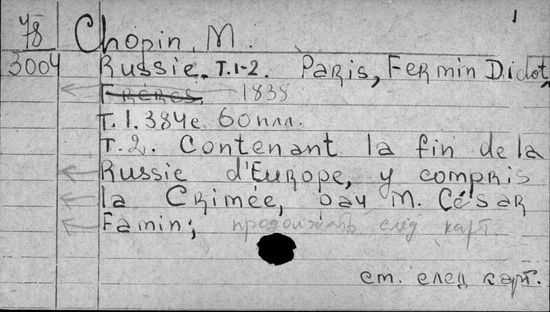 78 Chopin, M. 1
3004 Russie. T.1-2. Paris, Fermin Didot,
Frères. 1838
T.1. 384 с. 60 илл.
T.2. Contenant la fin de la
Russie d'Europe, y compris
la Crimée, pay M. César
Famin; продолжать след карт.
ст. след карт.